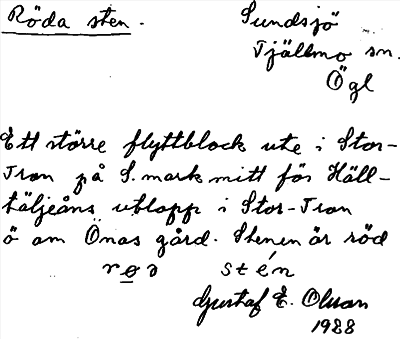 Röda sten.
Sundsjö
Tjällmo sn.
Ögl
Ett större flyttblock ute i Stor-
Tron på S. mark mitt för Häll-
täljeåns utlopp i Stor-Tron
ö om Önas gård. Stenen är röd
stén
Gustaf E. Olsson
1988